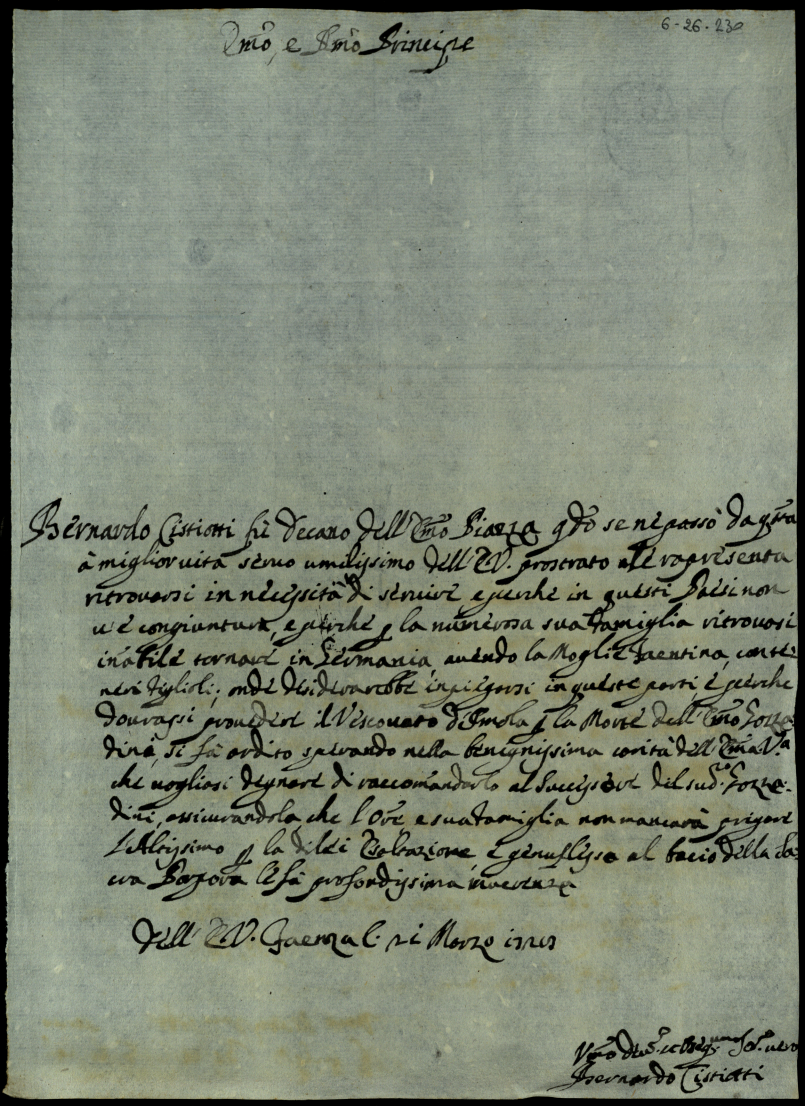 6-26-230
Emo, e Rmo Principe
Bernardo Cistiotti fù Decano dell' Emo Piazza qdo se ne passò da qsta
à miglior vita servo umilissimo dell' E.V. prostrato alle rapresenta
ritrovarsi in necessità di servire e perche in questi Paesi non
v'è congiuntura, e perche p la numerosa sua famiglia ritrovasi
inabile tornare in Germania, avendo la Moglie Faentina, con te-
neri figlioli; onde desiderarebbe inpiegarsi in queste parti, e perche
dourassi provedere il Vescovato d'Imola p la Morte dell' Emo Gozza
dini, si fà ardito sperando nella benignissima carità dell' Ema Va
che vogliasi degnare di raccomandarlo al Successore del sudo Gozza-
dini, assicurandola che l'Ore e sua famiglia non mancarà pregare
l'Altissimo p la di lei Esaltazione, e genuflesso al bacio della Sa-
cra Porpora le fà profondissima riverenza
Dell' E.V. Faenza li 21 Marzo
Vmo Devo et Obsegmo Ser. vero
Bernardo Cistiotti